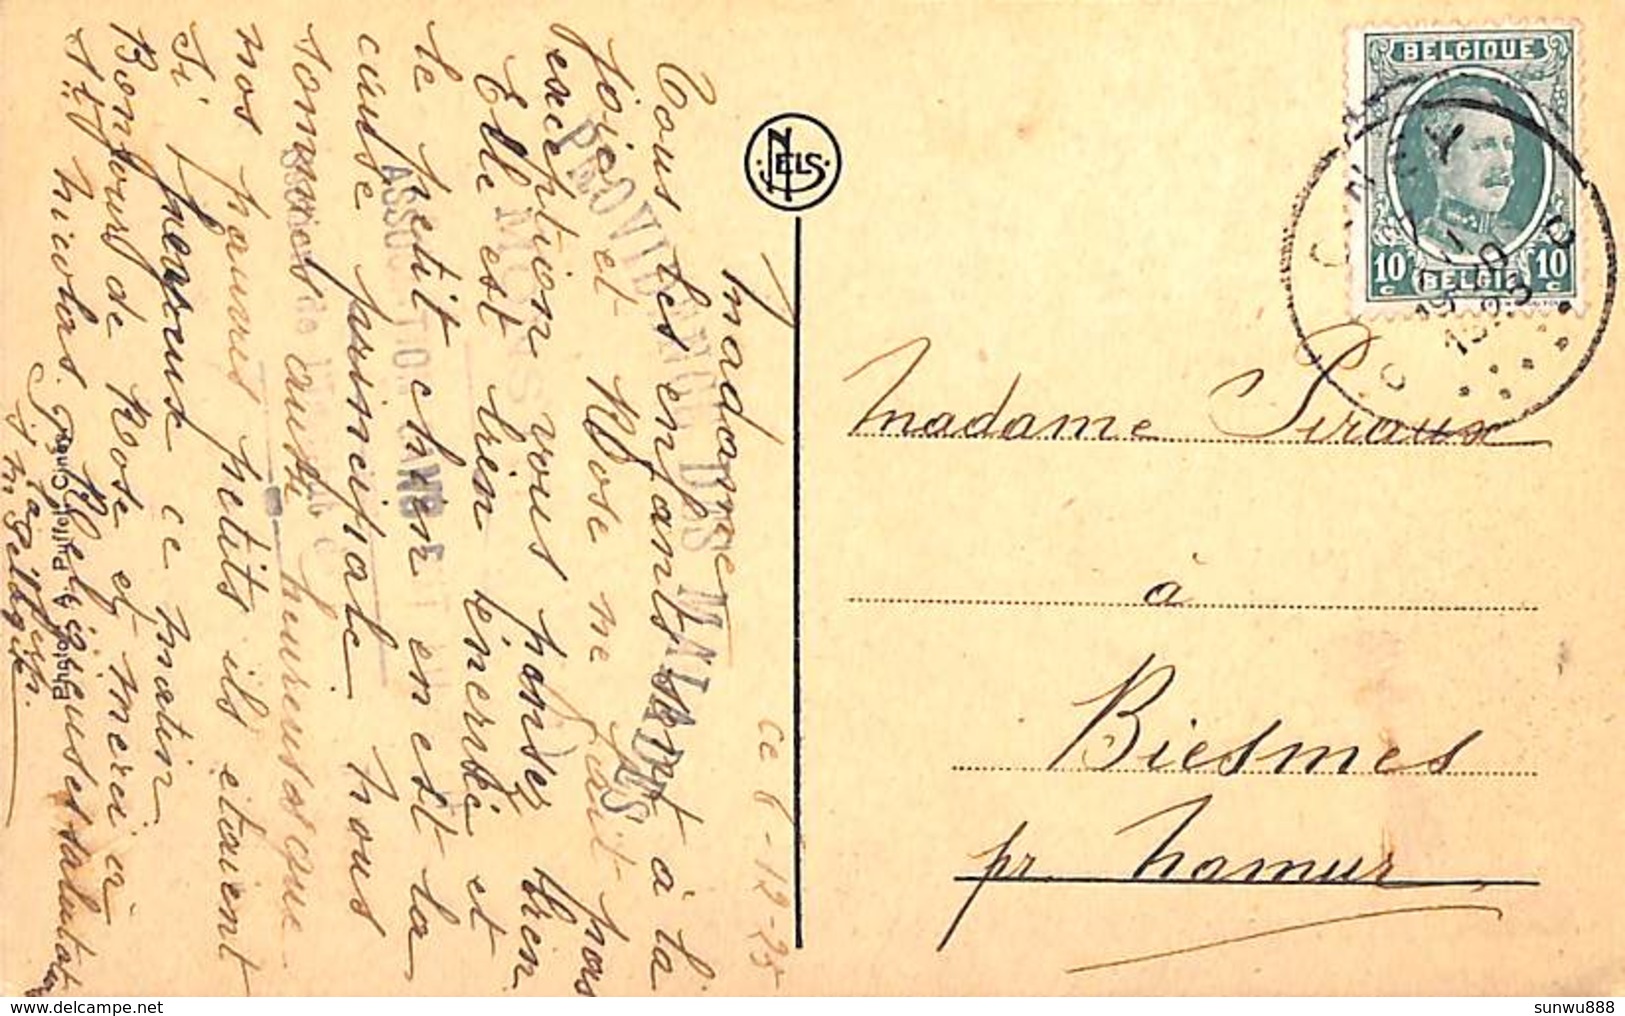 Madame
Tous les enfants sont à la
joie et Rose ne fait pas
exception vous pensez bien
Elle est bien énervée et
le petit chien en est la
cause principale nous
sommes aussi heureuses que
nos pauvres petits ils étaient
si heureux ce matin
Bonjour de Rose et merci à
St nicolas. Religieuses salutations
ce 8-12-25
PROVIDENCE DES MALADES
MONS
Photo
NELS
BELGIQUE
10 c
10 c
BELGIË
CINEY
Madame Piraux
à
Biesmes
pr Namur
sunwu888